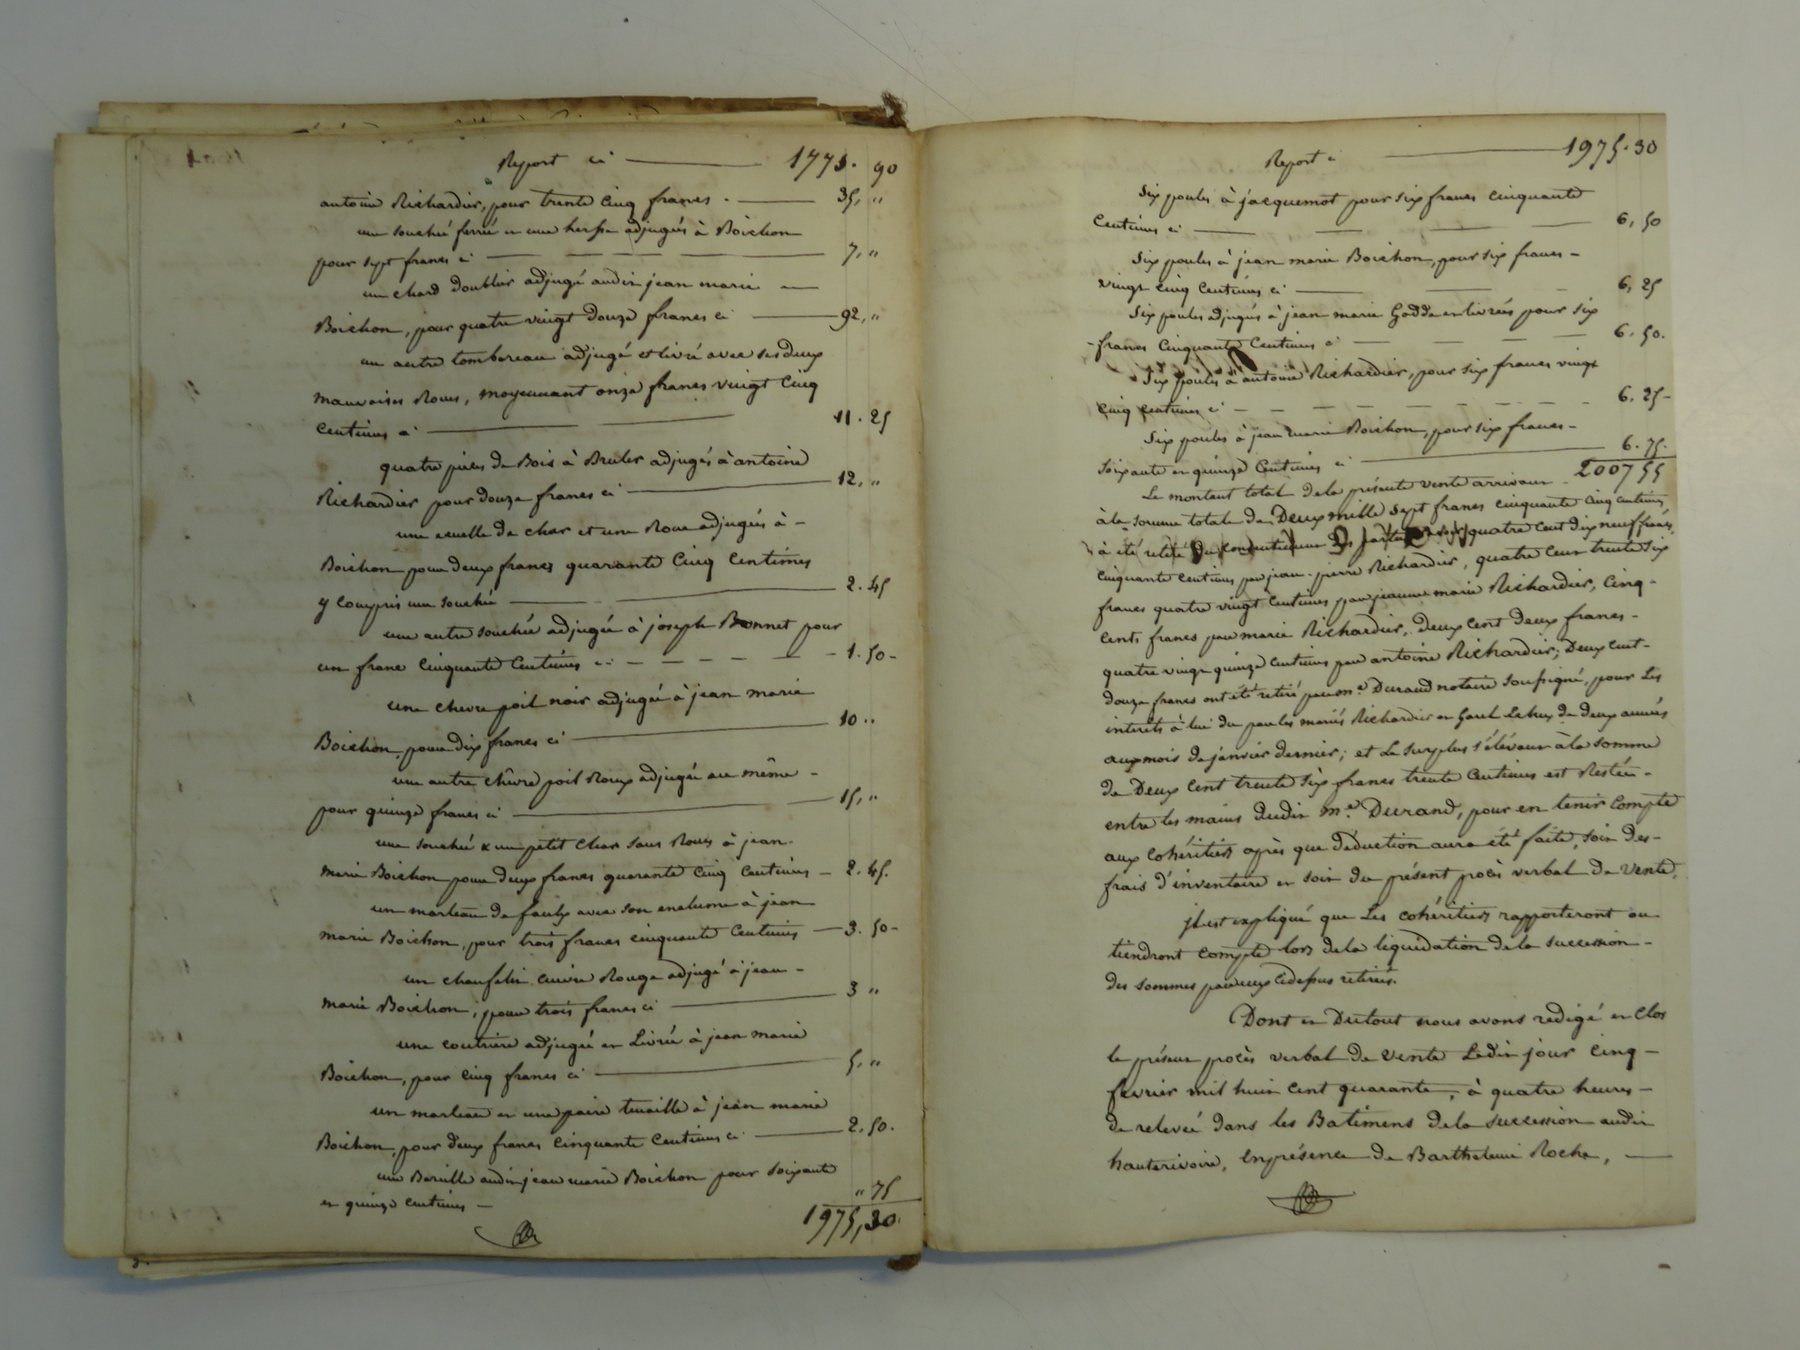 Report ci 1773. 90
antoine Richardier, pour trente cinq francs. 35, "
une souché ferré et une herse adjugés à Boichon
pour sept francs ci 7, "
un chard doublier adjugé audit jean marie
Boichon, pour quatre vingt douze francs ci 92, "
un autre tombereau adjugé et livré avec ses deux
mauvaises Roues, moyennant onze francs vingt Cinq
Centimes ci 11. 25
quatre pièces de Bois à Bruler adjugés à antoine
Richardier pour douze francs ci 12, "
une exuelle de char et une Roue adjugés à -
Boichon pour deux francs quarante Cinq Centimes
y compris une souché 2. 45
une autre souchée adjugée à joseph Bonnet pour
un franc Cinquante Centimes ci 1. 50 -
une chevre poil noir adjugée à jean marie
Boichon, pour dix francs ci 10 "
une autre chêvre poil Roux adjugé au même -
pour quinze francs ci 15, "
une souché & un petit char sans Roues à jean-
Marie Boichon pour deux francs quarante Cinq Centimes - 2. 45.
un marteau de faulx avec son enclume à jean
marie Boichon, pour trois francs cinquante Centimes 3. 50 -
un chaufelit cuivre Rouge adjugé à jean -
Marie Boichon, pour trois francs ci 3 "
une coutrière adjugée et Livrée à jean marie
Boichon, pour cinq francs ci 5, "
un marteau et une paire tenaille à jean marie
Boichon, pour deux francs cinquante Centimes ci 2. 50.
une Barille audit jean marie Boichon pour Soixante
et quinze centimes - " 75
1975, 30.
Report ci 1975. 30
Six poules à jacquemot pour six francs cinquante
Centimes ci 6, 50
Six poules à jean marie Boichon, pour six francs -
vingt cinq Centimes ci 6, 25
Six poules adjugés à jean marie Godde et livrés pour six
francs Cinquante Centimes ci 6. 50.
Six poules à antoine Richardier, pour six francs vingt
cinq centimes ci 6. 25 -
Six poules à jean marie Boichon, pour six francs -
soixante et quinze Centimes ci 6. 75.
Le montant total de la présente vente arrivant - 2007 55
à la somme totale de Deux mille Sept francs cinquante Cinq centimes
à été retiré du consentement des parties quatre cent dix neuf francs
cinquante centimes par jean-pierre Richardier, quatre cent trente six
francs quatre vingt Centimes par jeanne marie Richardier, Cinq -
cents francs par marie Richardier, Deux Cent Deux francs -
quatre vingt quinze Centimes par antoine Richardier; Deux cent-
douze francs ont été retiré par me. Durand notaire soussigné, pour Les
interêts à lui du par les mariés Richardier et Garel Echus de deux années
aux mois de janvier dernier; et Le Surplus s'élévant à la somme
de Deux Cent trente Six francs trente Centimes est Restée -
entre les mains dudit me. Durand, pour en tenir Compte
aux Cohéritiers après que déduction aura été faite, soit des-
frais d'inventaire et soit du présent procès verbal de Vente.
jl est expliqué que Les cohéritiers rapporteront ou
tiendront compte lors de la liquidation de la succession -
des sommes par eux cidessus retirées.
Dont et Du tout nous avons redigé et Clos
le présent procès verbal de vente Ledit jour cinq -
fevrier mil huit cent quarante, à quatre heures -
de relevée dans les Batimens de la succession audit
hauterivoire, En présence de Barthelemi Roche,